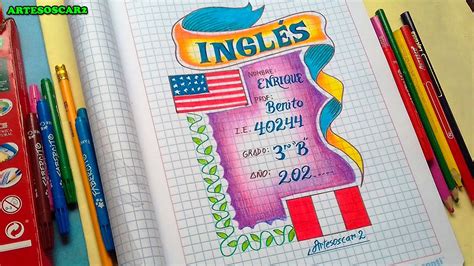 ARTESOSCAR2
INGLÉS
NOMBRE:
ENRIQUE
PROF:
Benito
I.E: 40244
GRADO: 3ro "B"
AÑO: 202......
Artesoscar 2